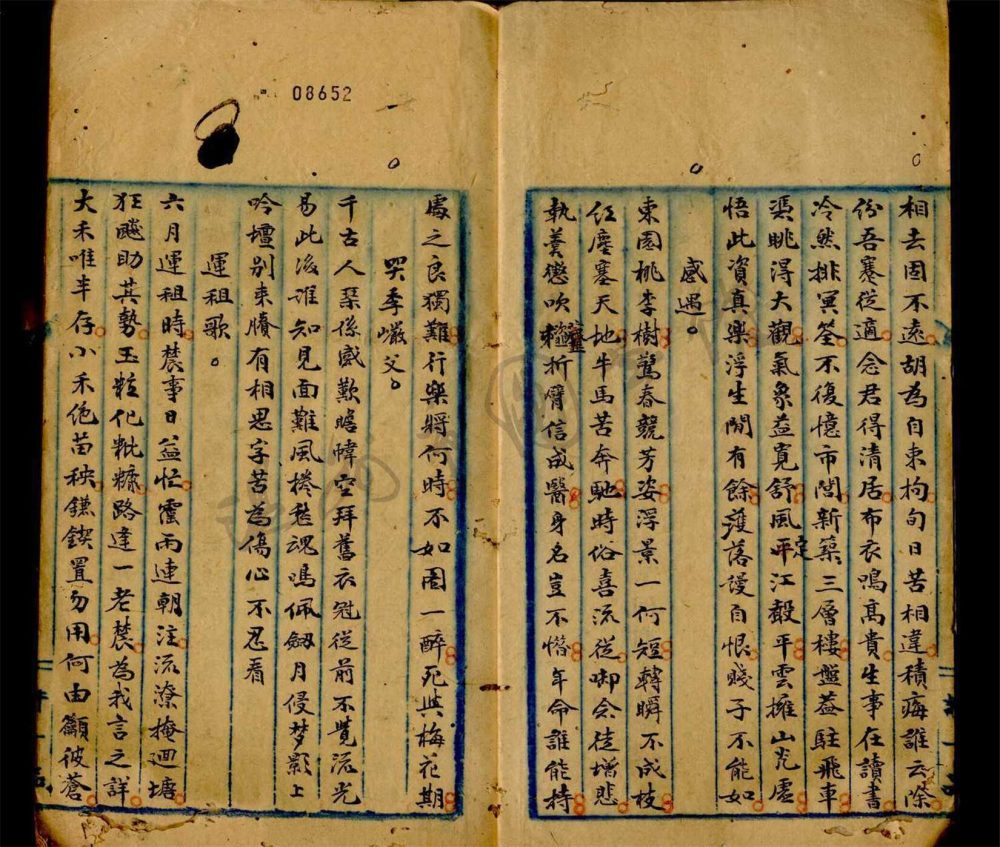 08652
相去固不遠胡為自束拘旬日苦相違積痗誰云除
份吾蹇從適念君得清居布衣鳴高貴生事在讀書
冷然排冥筌不復憶市閭新築三層樓盤葢駐飛車
憑眺淂大觀氣象益寛舒風平定江縠平雲擁山光虛
悟此資真樂浮生閒有餘濩落謾自恨賤子不能如
感遇。
東園桃李樹驚春競芳姿浮景一何短轉瞬不成枝
紅塵塞天地牛馬苦奔馳時俗喜流從啣念徒增悲
執羹懲吹虀折臂信成醫身名豈不惜年命誰能持
處之良獨難行樂將何時不如圖一醉死與梅花期
哭季巗父。
千古人琹係感歎瞻幃空拜舊衣冠從前不覺流光
易此後誰知見面難風捲愁魂鳴佩劔月侵梦影上
吟壇別来牘有相思字苦為傷心不忍看
運租歌。
六月運租時農事日益忙霪雨連朝注流潦掩迴塘
狂飈助其勢玉粒化粃糠路逢一老農為我言之詳
大禾唯半存小禾絶苗秧鎌鍥置勿用何由籲彼蒼